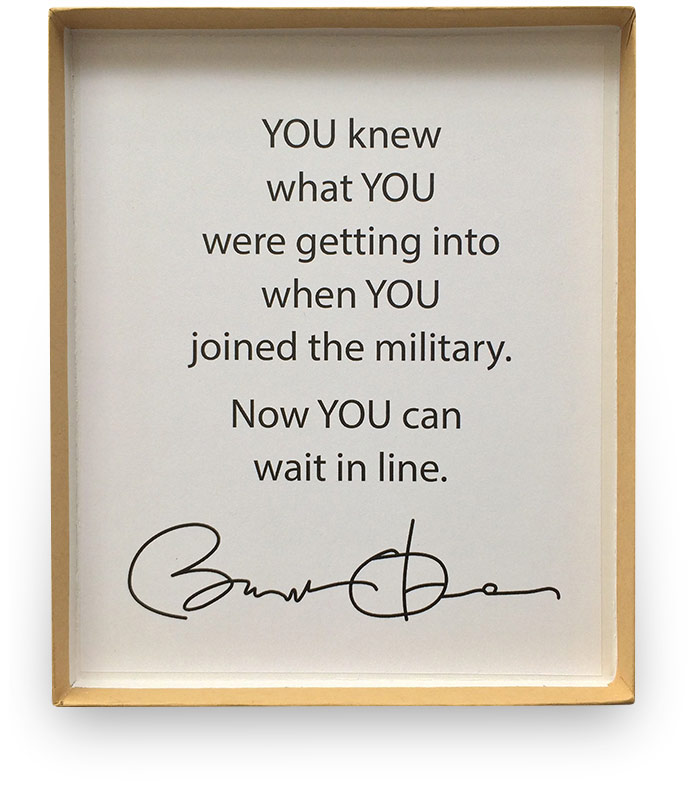 YOU knew
what YOU
were getting into
when YOU
joined the military.
Now YOU can
wait in line.